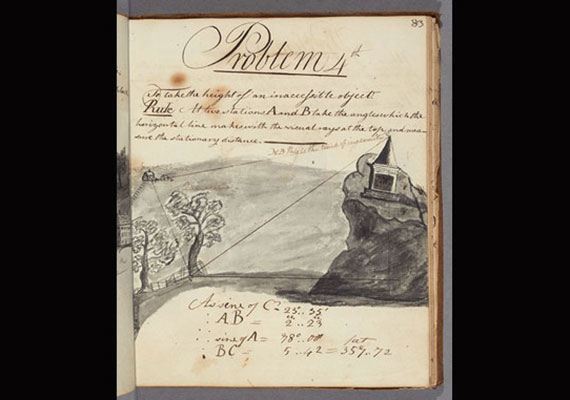 83
Problem 4th
To take the height of an inaccessible object.
Rule. At two stations A and B take the angles which the
horizontal line makes with the visual rays at the top, and mea-
sure the stationary distance.
N.B. this is the
As sine of C = 23°..35'
: AB = 2..23
:: sine of A = 78°..00
: BC = 5..42 = 359..72